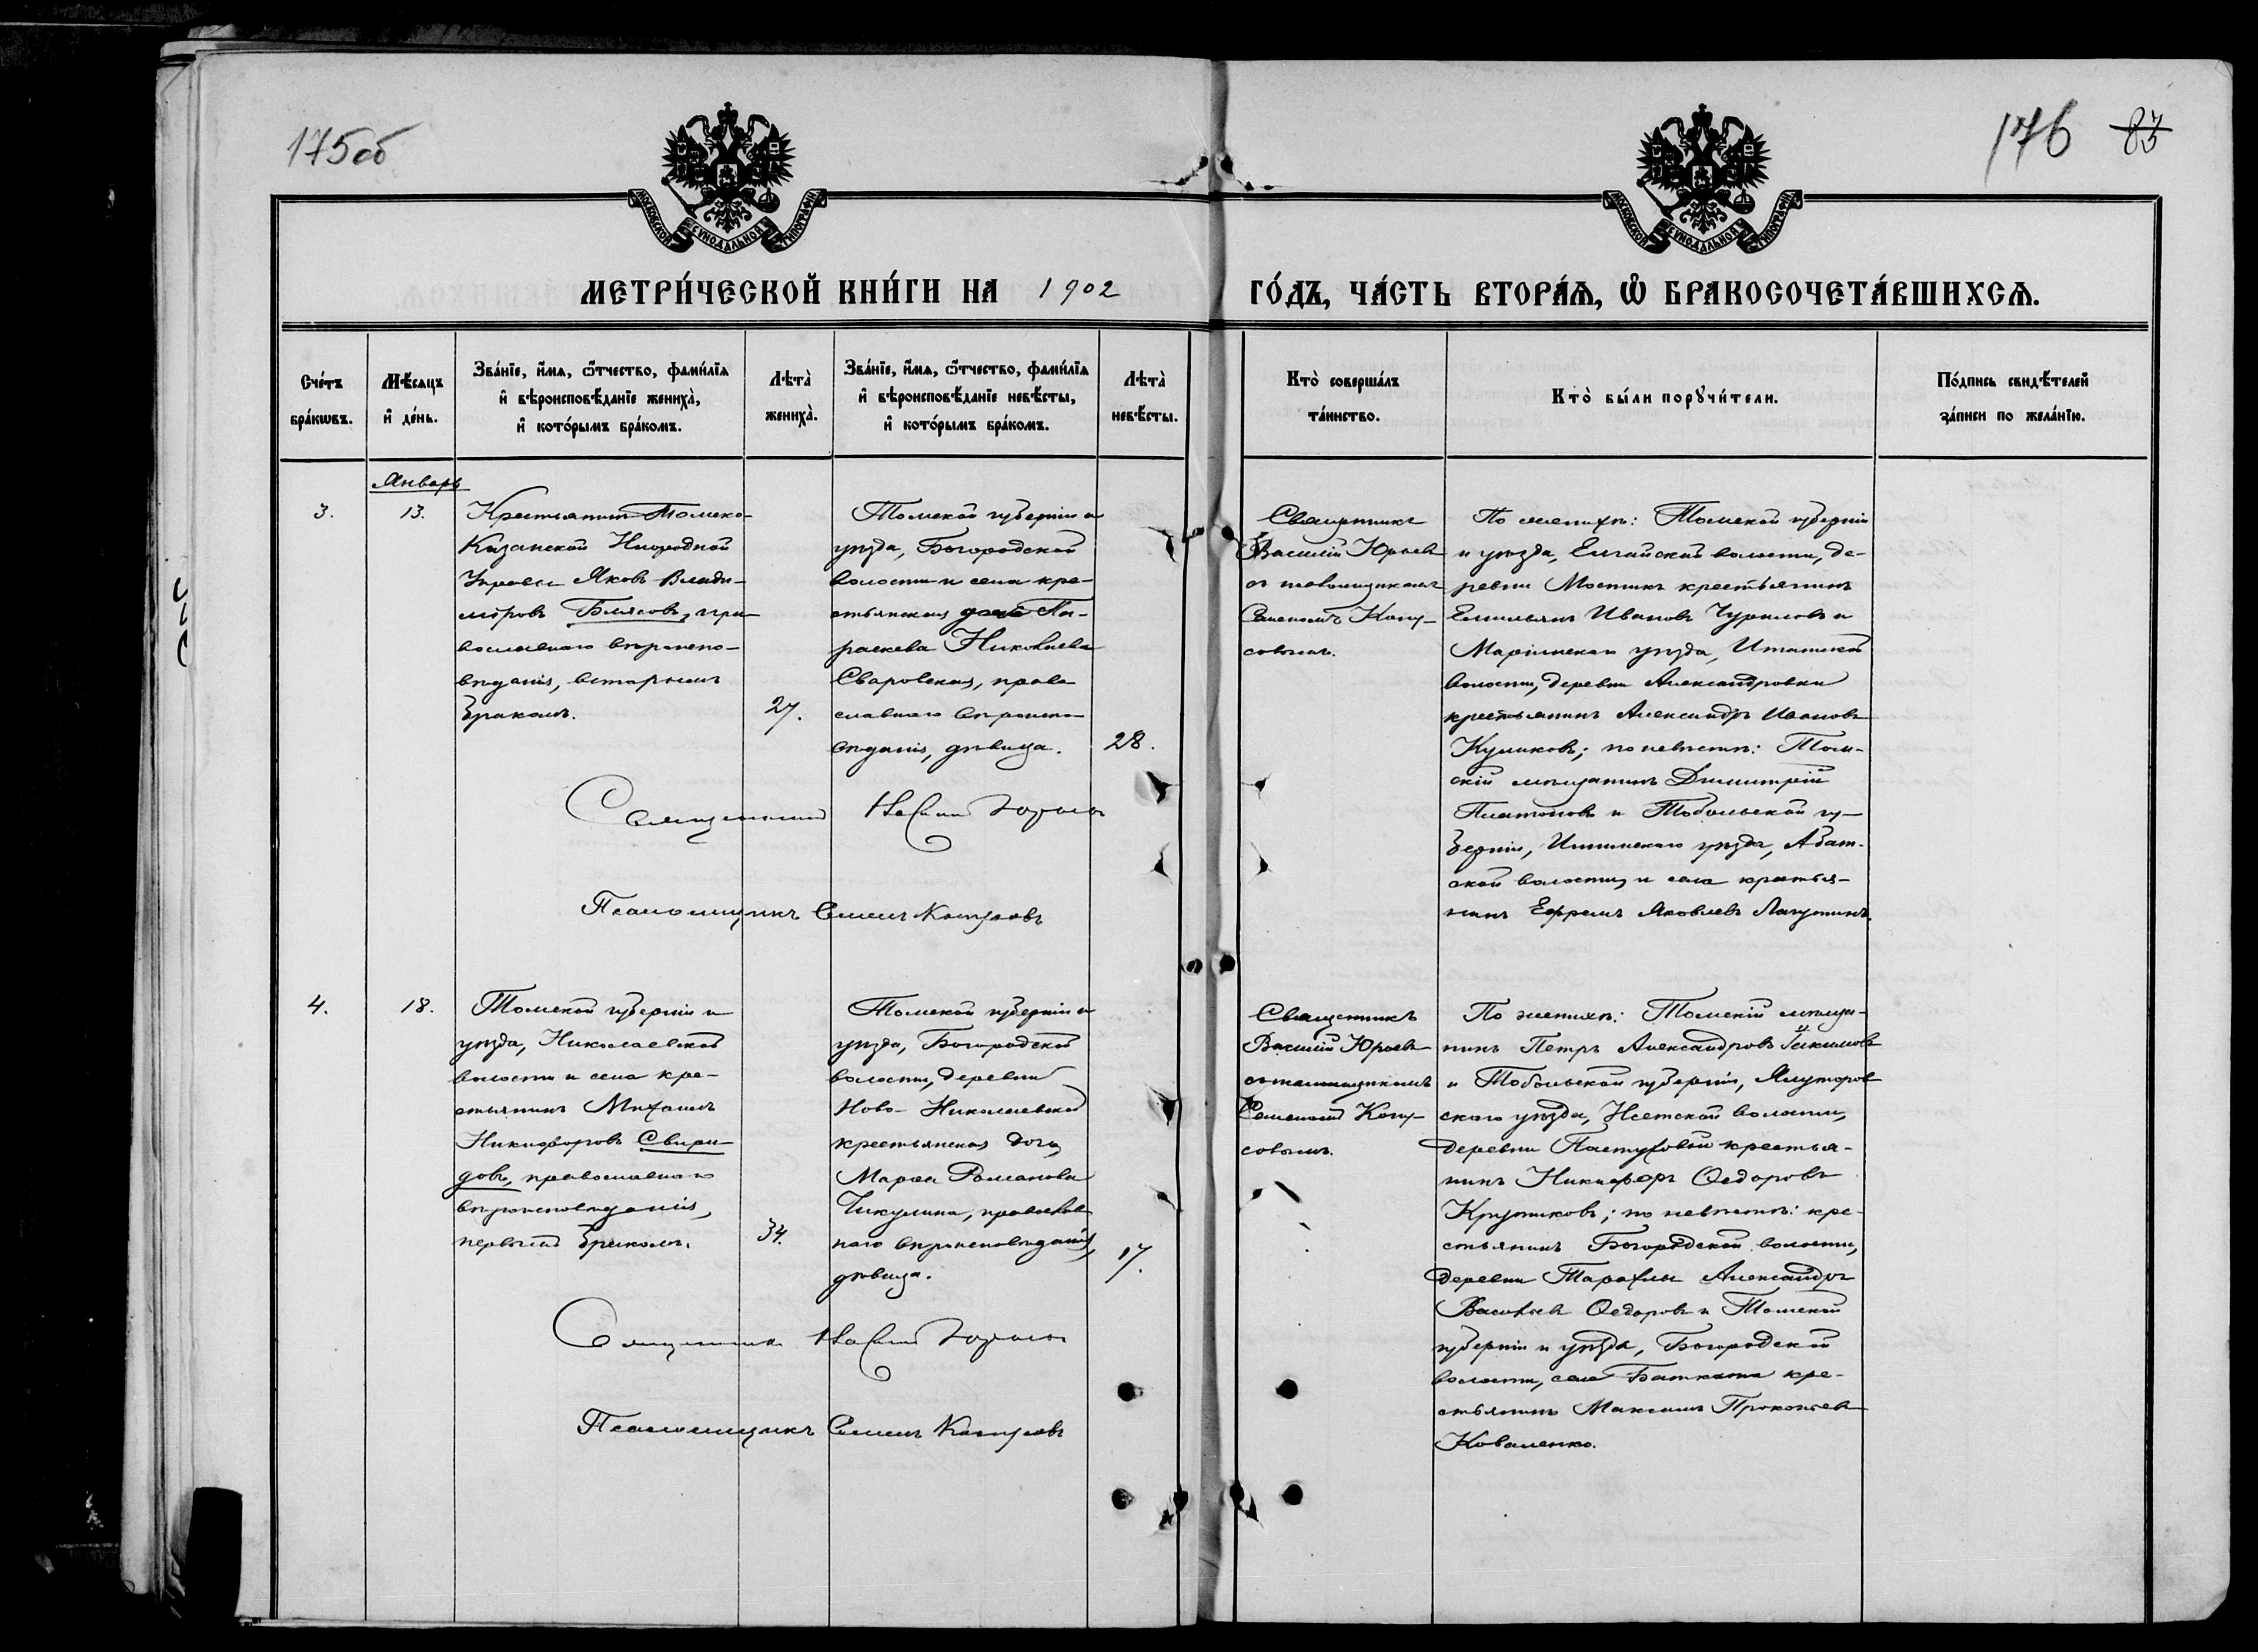 175об
176 83
МОСКОВСКОЙ СѴНОДАЛЬНОЙ ТИПОГРАФІИ
МОСКОВСКОЙ СѴНОДАЛЬНОЙ ТИПОГРАФІИ
МЕТРИ́ЧЕСКОЙ КНИ́ГИ НА 1902
ГО́ДЪ, ЧА́СТЬ ВТОРА́Ѧ, Ѽ БРАКОСОЧЕТА́ВШИХСѦ.
Сче́тъ
бра́кѡвъ.
Мѣ́сяцъ
и҆ де́нь.
Зва́нїе, и҆́мѧ, ѻ҆́тчество, фами́лїѧ
и҆ вѣроисповѣ́данїе жениха̀,
и҆ кото́рымъ бра́комъ.
Лѣта̀
жениха̀.
Зва́нїе, и҆́мѧ, ѻ҆́тчество, фами́лїѧ
и҆ вѣроисповѣ́данїе невѣ́сты,
и҆ кото́рымъ бра́комъ.
Лѣта̀
невѣ́сты.
Кто̀ соверша́лъ
та́инство.
Кто̀ бы́ли порꙋчи́тели.
По́дпись свидѣ́телей
за́писи по жела́нїю.
Январь
3.
13.
Крестьянинъ Томско-
Казанской Инородной
Управы Яковъ Влади-
міровъ Блясовъ, пра-
вославнаго вѣроиспо-
вѣданія, вторымъ
бракомъ.
27.
Томской губерніи и
уѣзда, Богородской
волости и села кре-
стьянская дочь Па-
раскева Николаева
Сваровская, право-
славнаго вѣроиспо-
вѣданія, дѣвица.
28.
Священникъ
Василій Юрьевъ
съ псаломщикомъ
Семеномъ
совымъ.
По женихѣ: Томской губерніи
и уѣзда, Елгайской волости, де-
ревни Мостикъ крестьянинъ
Емильянъ Ивановъ Чуриловъ и
Маріинскаго уѣзда, Итатской
волости, деревни Александровки
крестьянинъ Александръ Ивановъ
Куликовъ; по невѣстѣ: Том-
скій мѣщанинъ Димитрій
Платоновъ и Тобольской гу-
берніи, Ишимскаго уѣзда, Абат-
ской волости, и села крестья-
нинъ Ефремъ Яковлевъ Лагутинъ.
Священникъ Василій Юрьевъ
Псаломщикъ Семенъ
4.
18.
Томской губерніи и
уѣзда, Николаевской
волости и села кре-
стьянинъ Михаилъ
Никифоровъ Свири-
довъ, православнаго
вѣроисповѣданія,
первымъ бракомъ.
34.
Томской губерніи и
уѣзда, Богородской
волости, деревни
Ново-Николаевской
крестьянская дочь
Марѳа Романова
Чикулина, православ-
наго вѣроисповѣданія,
дѣвица.
17.
Священникъ
Василій Юрьевъ
съ псаломщикомъ
Семеномъ
совымъ.
По женихѣ: Томскій мѣща-
нинъ Петръ Александровъ
и Тобольской губерніи, Ялуторов-
скаго уѣзда, Исетской волости,
деревни Пастуховой крестья-
нинъ Никифоръ Ѳедоровъ
Крутиковъ; по невѣстѣ: кре-
стьянинъ Богородской волости,
деревни Тарахлы Александръ
Васильевъ Ѳедоровъ и Томской
губерніи и уѣзда, Богородской
волости, села Батката кре-
стьянинъ Максимъ Прокопьевъ
Коваленко.
Священникъ Василій Юрьевъ
Псаломщикъ Семенъ